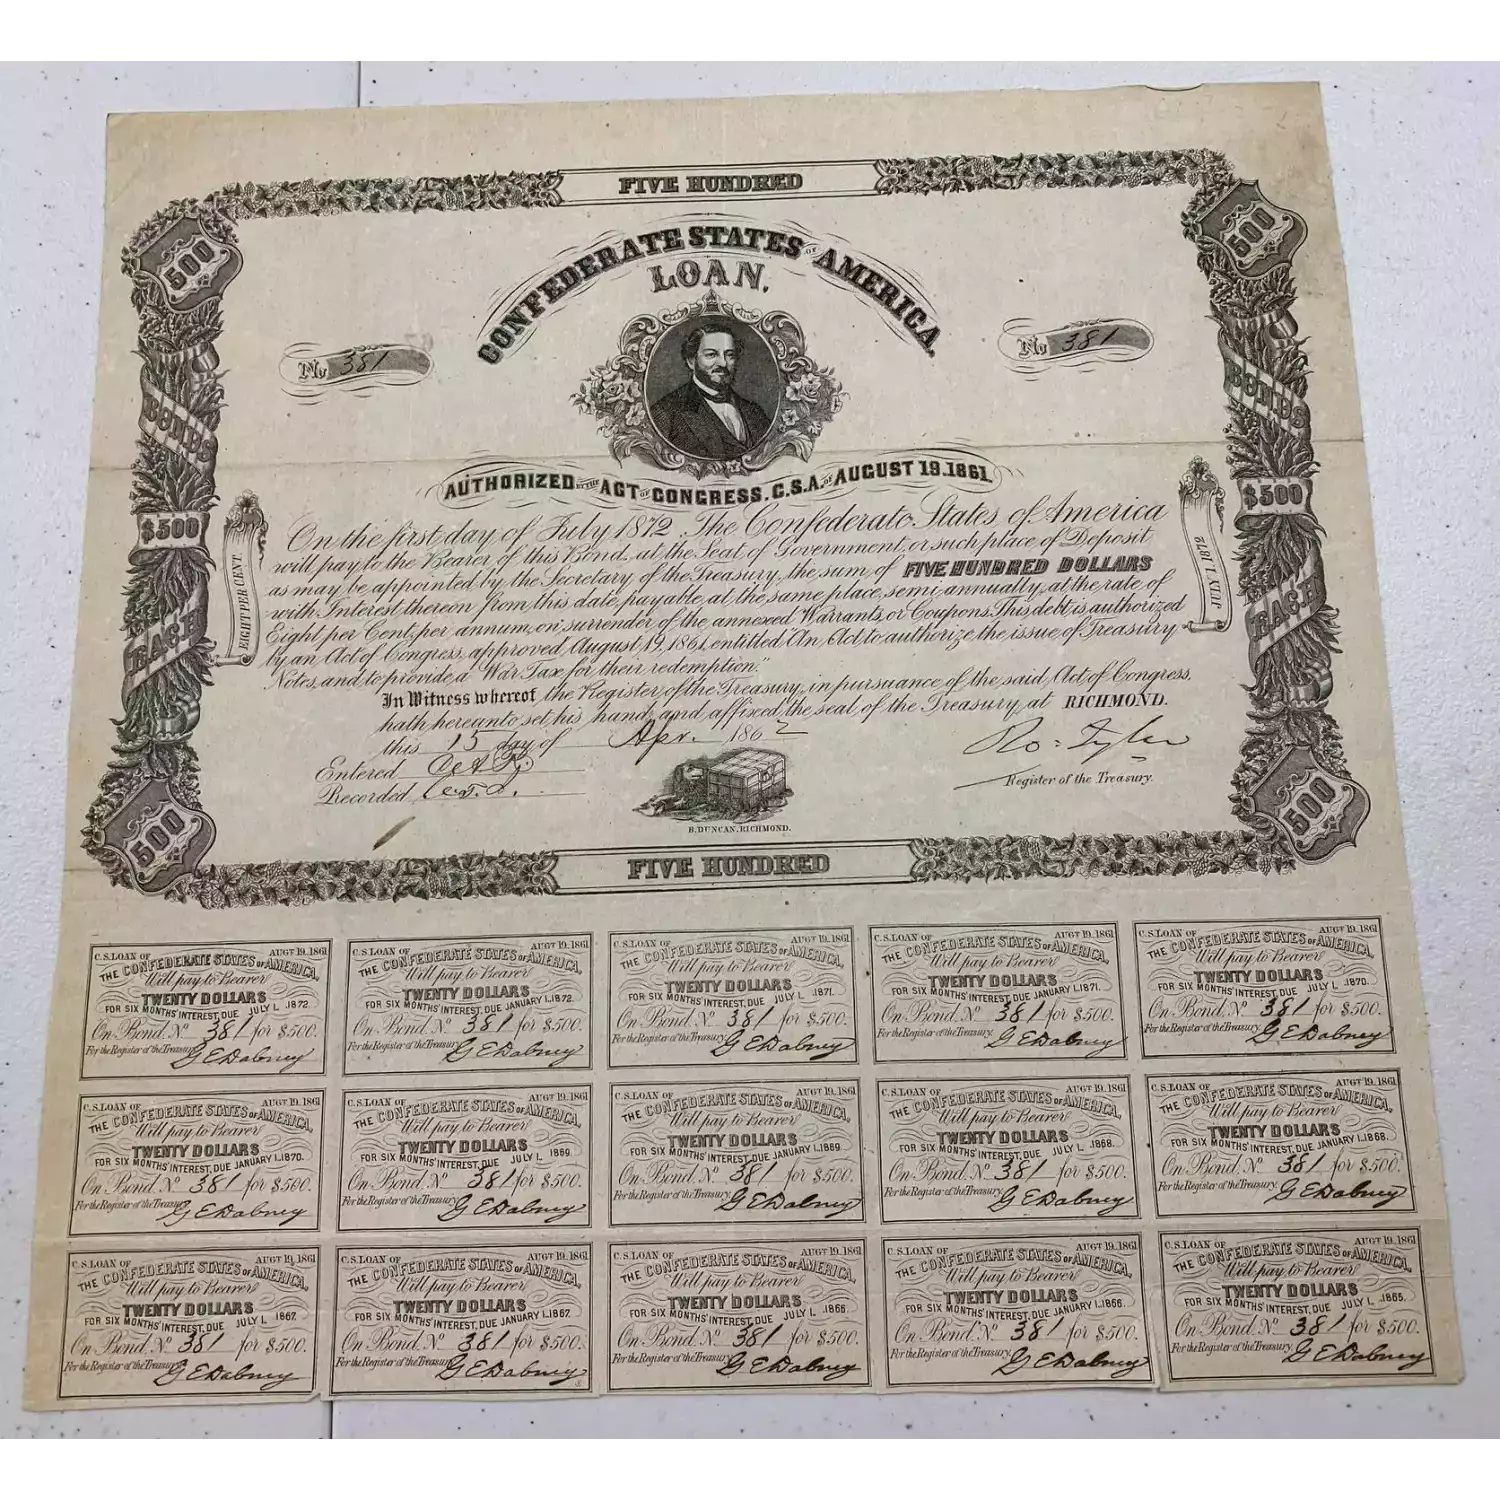 FIVE HUNDRED
500
500
CONFEDERATE STATES OF AMERICA
LOAN.
No 381
No 381
BONDS
BONDS
AUTHORIZED BY THE ACT OF CONGRESS, C.S.A. OF AUGUST 19.1861.
$500
$500
EIGHT PER CENT.
JULY 1.1872
On the first day of July 1872. The Confederate States of America
will pay to the Bearer of this Bond, at the Seat of Government, or such place of Deposit
as may be appointed by the Secretary of the Treasury, the sum of FIVE HUNDRED DOLLARS
with Interest thereon from this date, payable, at the same place, semi-annually, at the rate of
Eight per Cent, per annum, on surrender of the annexed Warrants, or Coupons. This debt is authorized
by an Act of Congress, approved August 19, 1861, entitled "An Act to authorize the issue of Treasury
Notes, and to provide a War Tax for their redemption."
EACH
EACH
In Witness whereof the Register of the Treasury, in pursuance of the said Act of Congress,
hath hereunto set his hand, and affixed the seal of the Treasury, at RICHMOND.
this 15 day of Apr. 1862
Ro: Tyler
Entered
Register of the Treasury.
Recorded
B. DUNCAN. RICHMOND.
500
500
FIVE HUNDRED
C.S. LOAN OF AUGT 19.1861
THE CONFEDERATE STATES OF AMERICA,
Will pay to Bearer
TWENTY DOLLARS
FOR SIX MONTHS' INTEREST, DUE JULY 1. 1872.
On Bond No 381 for $500.
For the Register of the Treasury
G E Dabney
C.S. LOAN OF AUGT 19.1861
THE CONFEDERATE STATES OF AMERICA,
Will pay to Bearer
TWENTY DOLLARS
FOR SIX MONTHS' INTEREST, DUE JANUARY 1.1872.
On Bond No 381 for $500.
For the Register of the Treasury
G E Dabney
C.S. LOAN OF AUGT 19.1861
THE CONFEDERATE STATES OF AMERICA,
Will pay to Bearer
TWENTY DOLLARS
FOR SIX MONTHS' INTEREST, DUE JULY 1. 1871.
On Bond No 381 for $500.
For the Register of the Treasury
G E Dabney
C.S. LOAN OF AUGT 19.1861
THE CONFEDERATE STATES OF AMERICA,
Will pay to Bearer
TWENTY DOLLARS
FOR SIX MONTHS' INTEREST, DUE JANUARY 1.1871.
On Bond No 381 for $500.
For the Register of the Treasury
G E Dabney
C.S. LOAN OF AUGT 19.1861
THE CONFEDERATE STATES OF AMERICA,
Will pay to Bearer
TWENTY DOLLARS
FOR SIX MONTHS' INTEREST, DUE JULY 1. 1870.
On Bond No 381 for $500.
For the Register of the Treasury
G E Dabney
C.S. LOAN OF AUGT 19.1861
THE CONFEDERATE STATES OF AMERICA,
Will pay to Bearer
TWENTY DOLLARS
FOR SIX MONTHS' INTEREST, DUE JANUARY 1.1870.
On Bond No 381 for $500.
For the Register of the Treasury
G E Dabney
C.S. LOAN OF AUGT 19.1861
THE CONFEDERATE STATES OF AMERICA,
Will pay to Bearer
TWENTY DOLLARS
FOR SIX MONTHS' INTEREST, DUE JULY 1. 1869.
On Bond No 381 for $500.
For the Register of the Treasury
G E Dabney
C.S. LOAN OF AUGT 19.1861
THE CONFEDERATE STATES OF AMERICA,
Will pay to Bearer
TWENTY DOLLARS
FOR SIX MONTHS' INTEREST, DUE JANUARY 1.1869.
On Bond No 381 for $500.
For the Register of the Treasury
G E Dabney
C.S. LOAN OF AUGT 19.1861
THE CONFEDERATE STATES OF AMERICA,
Will pay to Bearer
TWENTY DOLLARS
FOR SIX MONTHS' INTEREST, DUE JULY 1. 1868.
On Bond No 381 for $500.
For the Register of the Treasury
G E Dabney
C.S. LOAN OF AUGT 19.1861
THE CONFEDERATE STATES OF AMERICA,
Will pay to Bearer
TWENTY DOLLARS
FOR SIX MONTHS' INTEREST, DUE JANUARY 1.1868.
On Bond No 381 for $500.
For the Register of the Treasury
G E Dabney
C.S. LOAN OF AUGT 19.1861
THE CONFEDERATE STATES OF AMERICA,
Will pay to Bearer
TWENTY DOLLARS
FOR SIX MONTHS' INTEREST, DUE JULY 1. 1867.
On Bond No 381 for $500.
For the Register of the Treasury
G E Dabney
C.S. LOAN OF AUGT 19.1861
THE CONFEDERATE STATES OF AMERICA,
Will pay to Bearer
TWENTY DOLLARS
FOR SIX MONTHS' INTEREST, DUE JANUARY 1.1867.
On Bond No 381 for $500.
For the Register of the Treasury
G E Dabney
C.S. LOAN OF AUGT 19.1861
THE CONFEDERATE STATES OF AMERICA,
Will pay to Bearer
TWENTY DOLLARS
FOR SIX MONTHS' INTEREST, DUE JULY 1. 1866.
On Bond No 381 for $500.
For the Register of the Treasury
G E Dabney
C.S. LOAN OF AUGT 19.1861
THE CONFEDERATE STATES OF AMERICA,
Will pay to Bearer
TWENTY DOLLARS
FOR SIX MONTHS' INTEREST, DUE JANUARY 1.1866.
On Bond No 381 for $500.
For the Register of the Treasury
G E Dabney
C.S. LOAN OF AUGT 19.1861
THE CONFEDERATE STATES OF AMERICA,
Will pay to Bearer
TWENTY DOLLARS
FOR SIX MONTHS' INTEREST, DUE JULY 1. 1865.
On Bond No 381 for $500.
For the Register of the Treasury
G E Dabney